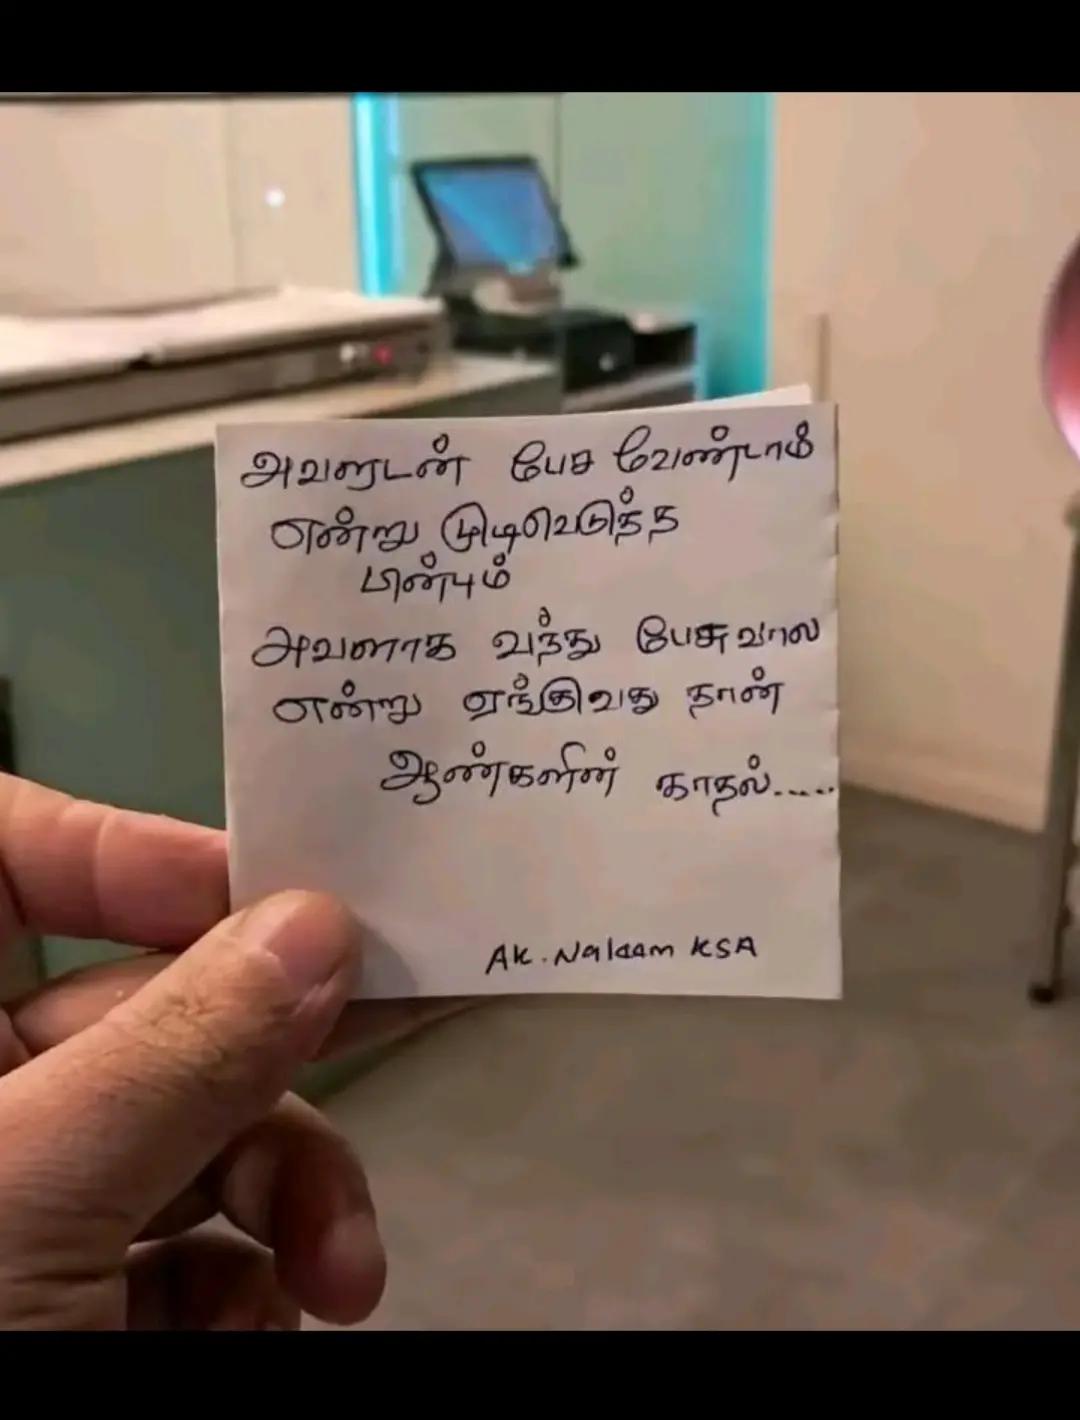 அவளுடன் பேச வேண்டாம்
என்று முடிவெடுத்த
பின்பும்
அவளாக வந்து பேசுவாள
என்று ஏங்குவது தான்
ஆண்களின் காதல்.....
AK. Nalaam KSA